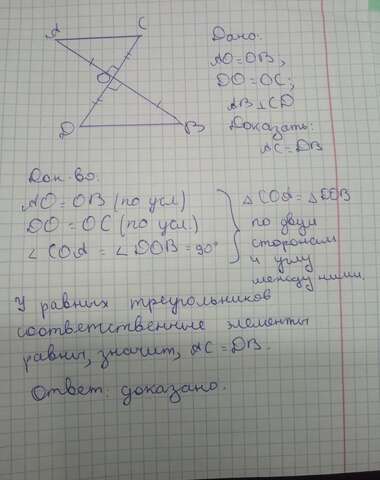 A C
O
D B
Дано:
AO=OB;
DO=OC;
AB⊥CD
Доказать:
AC=DB
Док-во.
AO=OB (по усл)
DO=OC (по усл.)
∠COA=∠DOB=90°
△COA=△DOB
по двум
сторонам
и углу
между ними.
У равных треугольников
соответственные элементы
равны, значит, AC=DB.
Ответ: доказано.